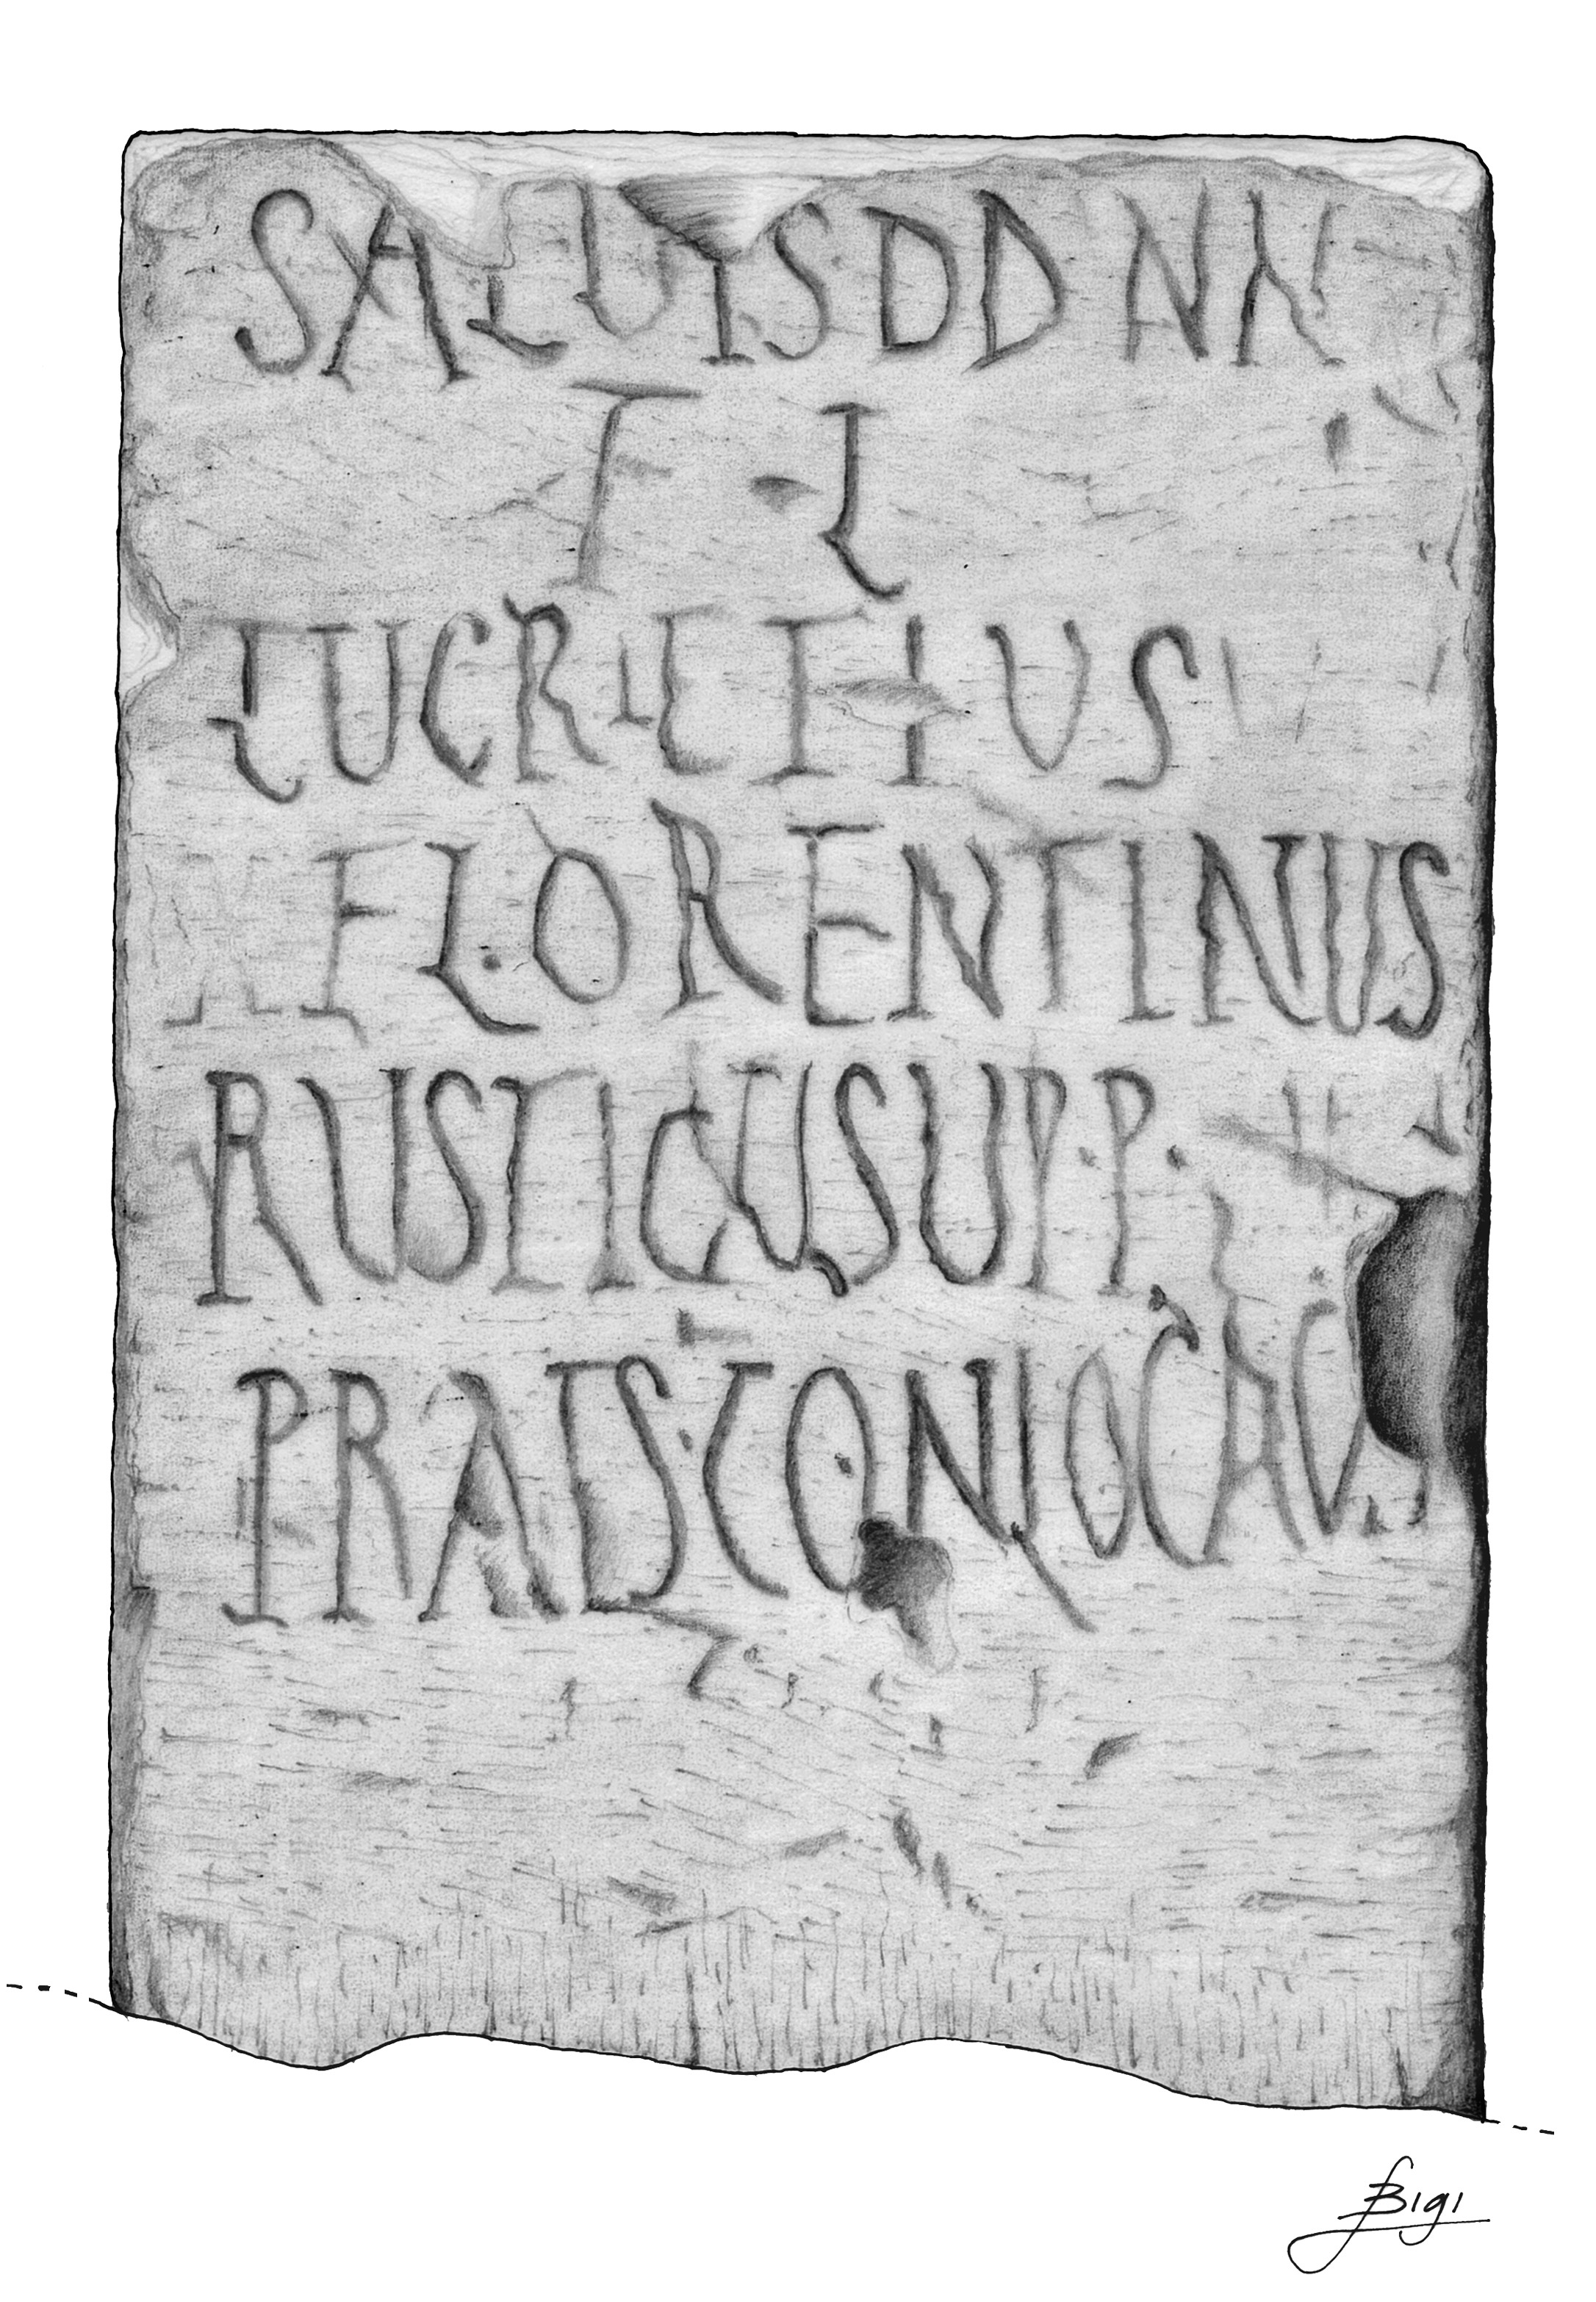 SALUIS DD NN
T L
LUCRETIUS
FLORENTINUS
RUSTICUS U P P
PRAES
Bigi